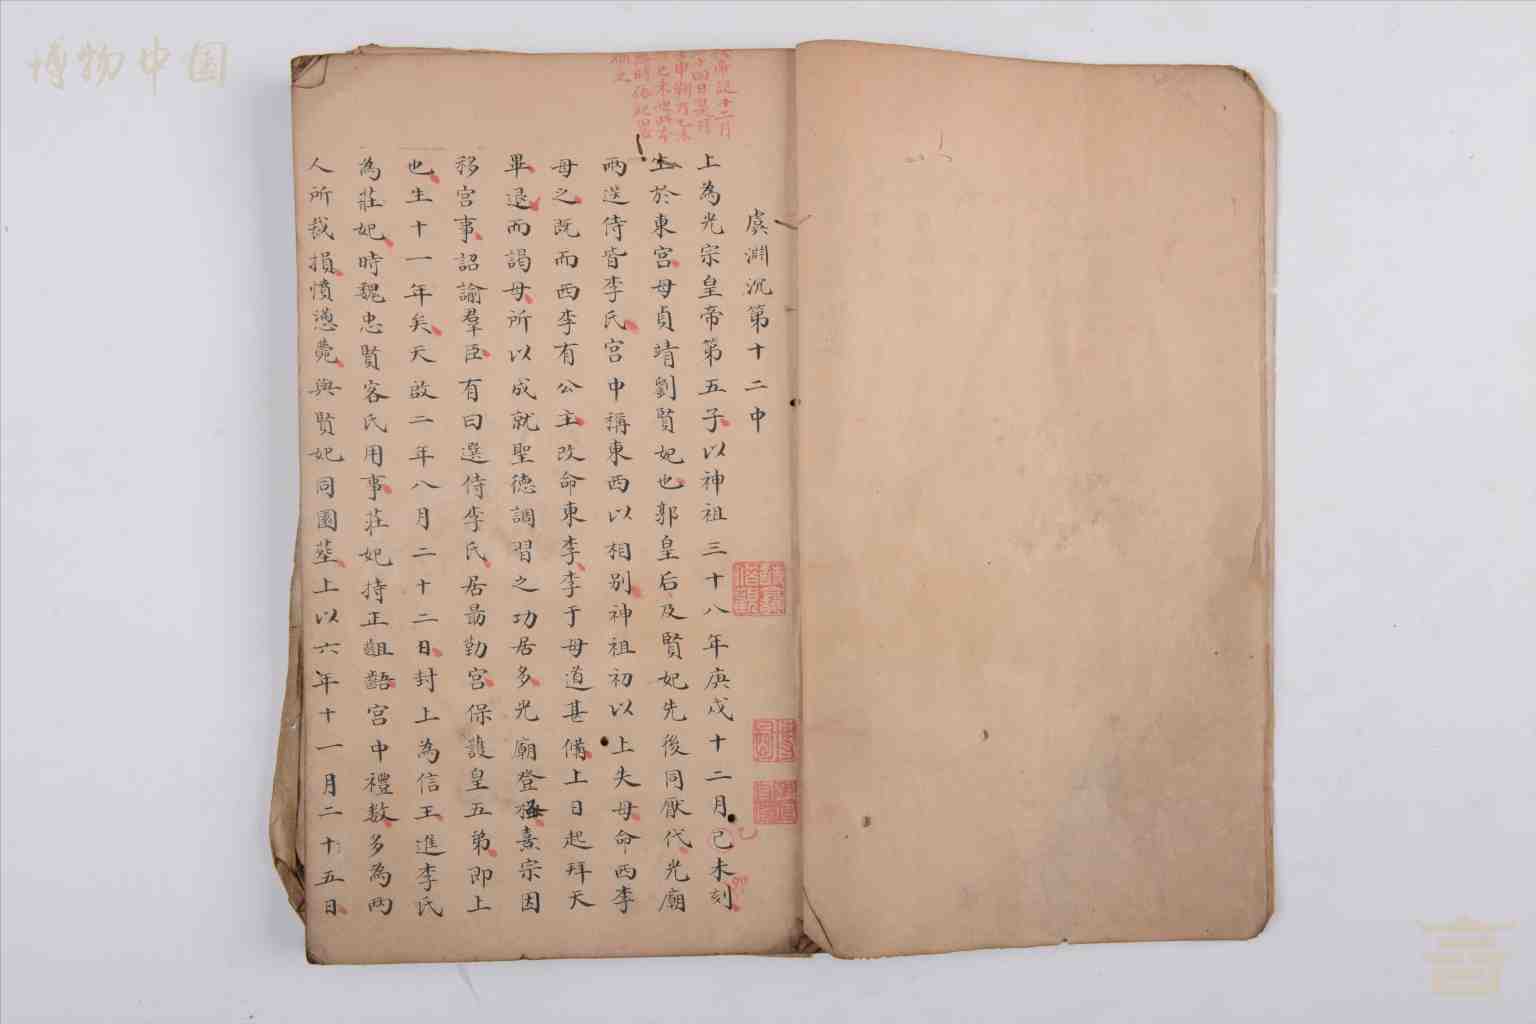 博物中国
虞淵沉第十二中
上為光宗皇帝第五子以神祖三十八年庚戌十二月已未刻
生於東宮母貞靖劉賢妃也郭皇后及賢妃先後同厭代光廟
兩選侍皆李氏宮中稱東西以相別神祖初以上失母命西李
母之既而西李有公主改命東李李于母道甚備上日起拜天
畢退而謁母所以成就聖德調習之功居多光廟登極熹宗因
移宮事詔諭羣臣有曰選侍李氏居最勤宮保護皇五弟即上
也生十一年矣天啟二年八月二十二日封上為信王進李氏
為莊妃時魏忠賢客氏用事莊妃持正齟齬宮中禮數多為兩
人所裁損憤懣薨與賢妃同園塟上以六年十一月二十五日